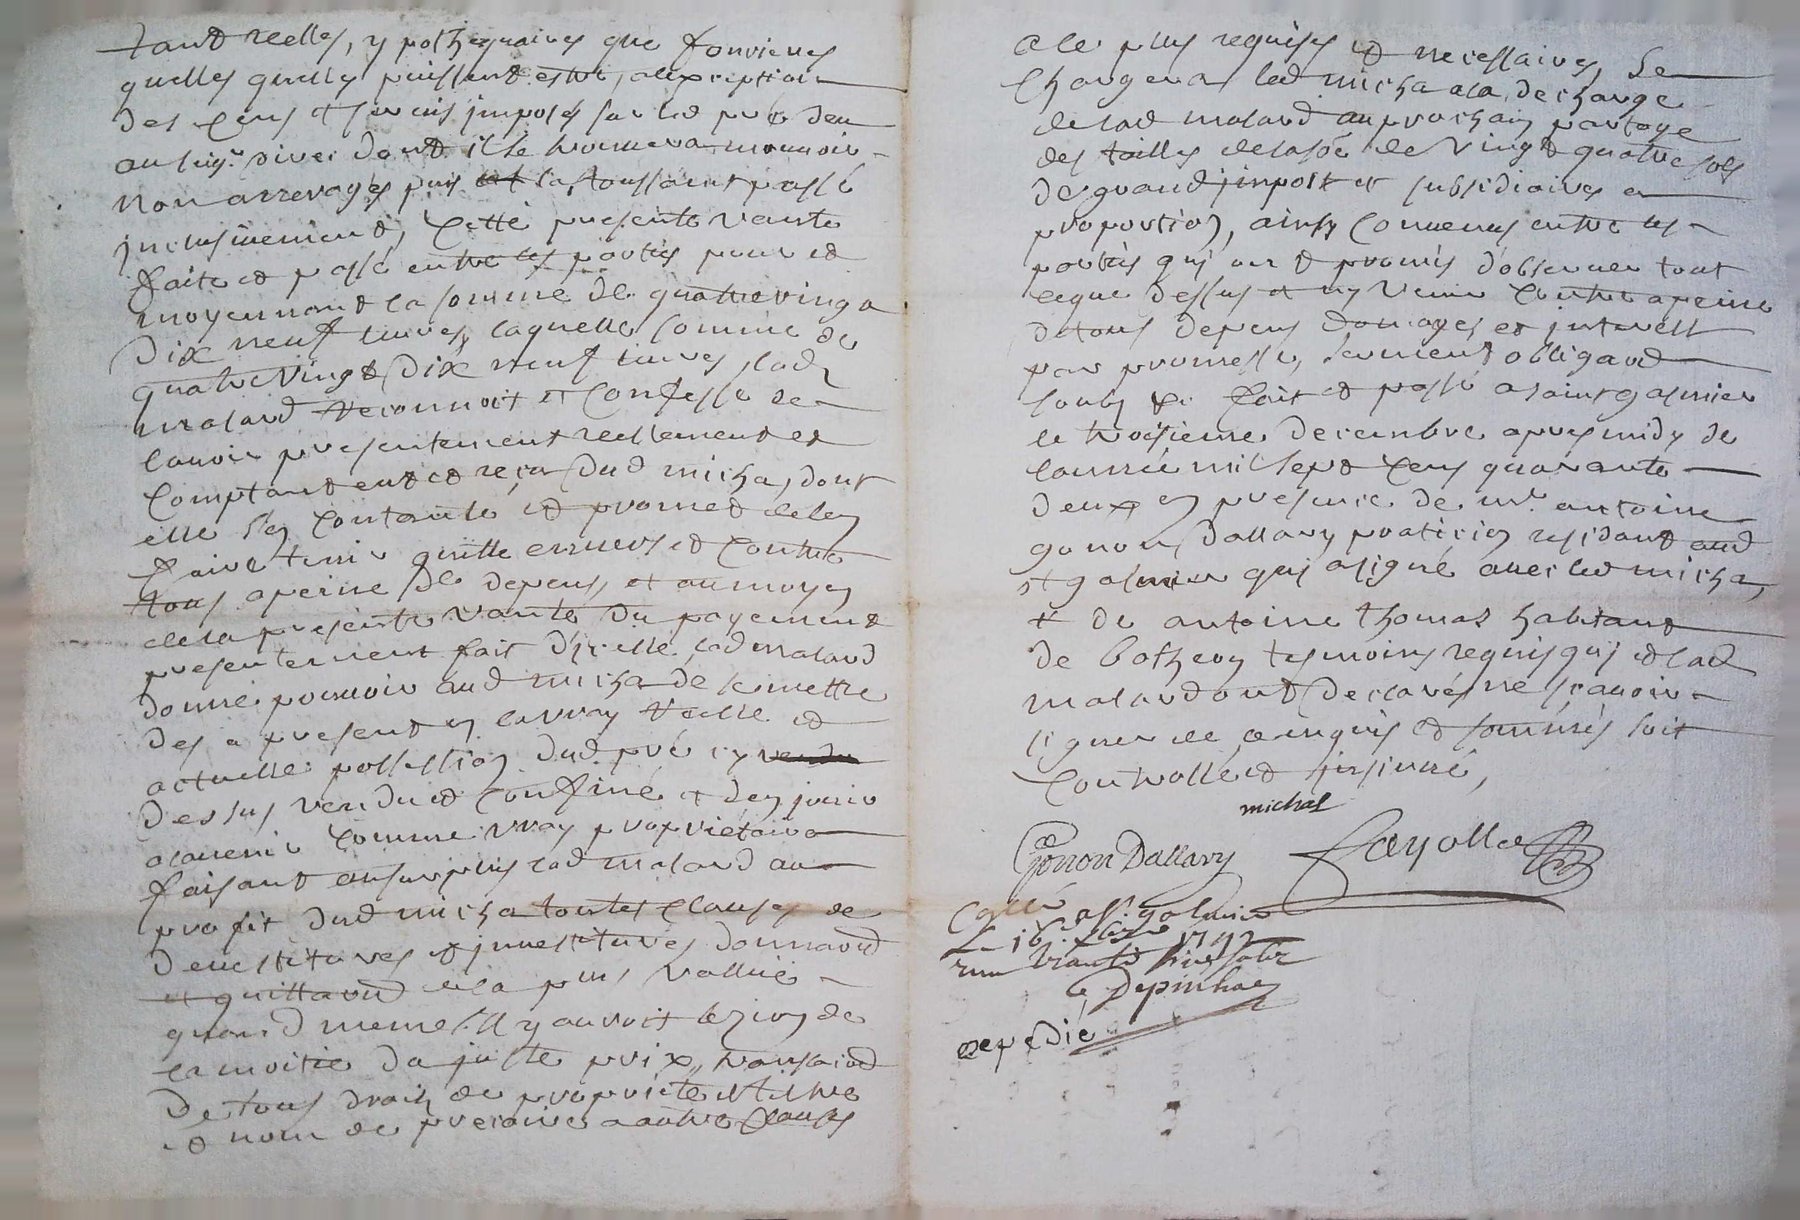 tant reelles, ypothequaires que foncieres
quelles quelles puissent estre, alexception
des cens et servis imposés sur led pré deu
au seigr. dont il se trouvera mouvoir
non arreragés puis la toussaint passé
inclusivement, cette presente vante
faite et passé entre les partis pour et
moyennant la somme de quatre vingt
dix neuf livres, laquelle somme de
quatre vingt dix neuf livres, lad
malard reconnoit et confesse de
lavoir presentement reellement et
comptant eut et reçu dud micha, dont
elle sen contante et promet delen
faire tenir quitte envers et contre
tous apeine de depens, et au moyen
dela presente vante du payement
presentement fait dicelle, lad malard
donne pouvoir aud micha de se mettre
des a present en la vray reelle et
actuelle possession dud pré cy
dessus vendu et confiné et den jouir
alavenir comme vray proprietaire
faisant ensurplus lad malard au
profit dud micha toutes clauses de
devestitures et investitures donnand
et quittand dela plus vallue
quand meme il y auroit lezion de
la moitié du juste prix, transaind
de tous droits de proprieté titre
et nom de precaire a autre clauses
ale plus requises et necessaires, se
chargera led micha ala decharge
delad malard au prochain partage
des tailles de vingt quatre sols
de grand impost et subsidiaires a
proportion, ainsy convenus entre les
partis qui ont promis dobserver tout
ceque dessus et ny venir contre apeine
de tous depens domages et interest
par promesse, serment obligand
soubz &c fait et passé a saint galmier
le troisieme decembre apres midy de
lannée mil sept cens quarante
deux en presence de mr. antoine
gonon dallary praticien residant aud
st galmier qui a signé avec led micha,
et de antoine thomas habitant
de botheon tesmoins requis qui et lad
malard ont declarés ne sçavoir
signer de ce enquis et sommés soit
controllé et insinué,
michal
Gonon Dallary fayolle
Collé a st. galmier
Le 16e. xbre 1742
Depinhac
expedié